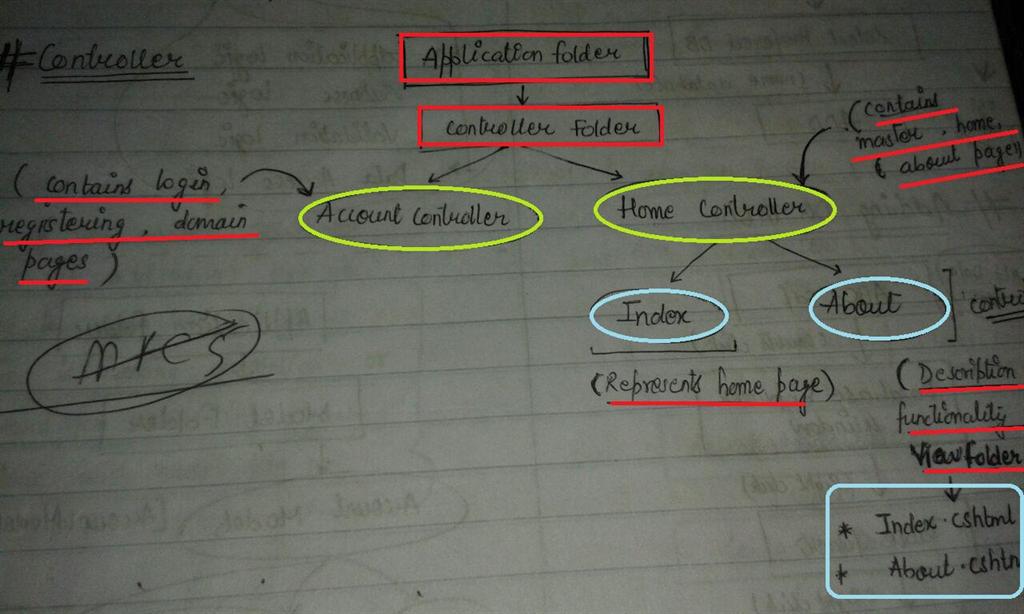 # Controller
Application folder
Controller Folder
(contains
master, home,
& about page)
(contains login,
registering, domain
pages)
Account Controller
Home Controller
Index
About
(Represents home page)
(Description
functionality
View folder
* Index.cshtml
* About.cshtm